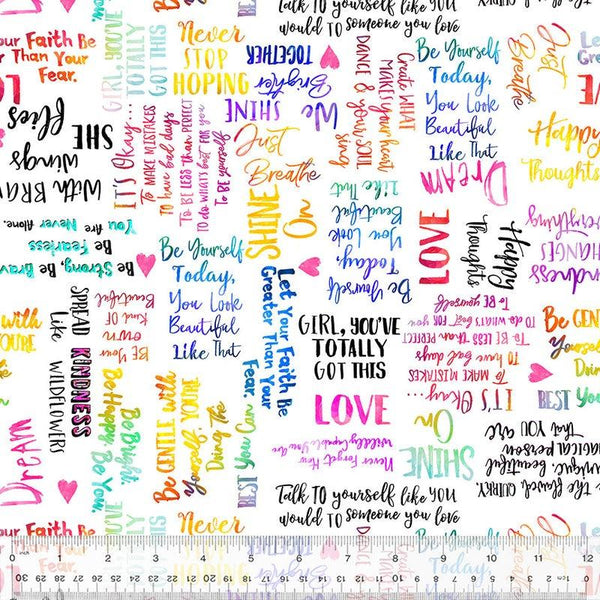 Talk TO yourself like YOU
would TO someone you love
Your Faith Be
Greater Than Your
Fear.
LOVE
GIRL, YOU'VE
TOTALLY
GOT THIS
Never
STOP
HOPING
We
SHINE
Brighter
TOGETHER
Create WHAT
MAKES your heart
DANCE & your SOUL
sing
Be Yourself
Today,
You Look
Beautiful
Like That
Just
Breathe
Let
Greater
LOVE
SHE
Flies
With BRAVE
wings
IT'S Okay...
To MAKE MISTAKES
To have bad days
To BE LESS than PERFECT
TO do WHATS best FOR YOU
TO BE yourself
Just
Breathe
SHINE
On
Be Yourself
Today,
You Look
Beautiful
Like That
DREAM
Happy
Thoughts
You Are Never Alone.
Be Fearless
Be Strong. Be Brave
Be Yourself
Today,
You Look
Beautiful
Like That
LOVE
Happy
Thoughts
Kindness
CHANGES
Everything
SPREAD KINDNESS
Like WILDFLOWERS
BE YOUR
own
KIND OF
Beautiful
Let Your Faith Be
Greater Than Your
Fear.
GIRL, YOU'VE
TOTALLY
GOT THIS
IT'S Okay...
To MAKE MISTAKES
To have bad days
To BE LESS than PERFECT
TO do WHATS best FOR YOU
TO BE yourself
Be GENTLE
Yourself
Doing
BEST You
with
YOU'RE
DREAM
Be Bright.
Be Happy. Be You.
Be GENTLE with
Yourself, YOU'RE
Doing The
BEST You Can
LOVE
Never Forget How
Wildly Capable You Are
SHINE
On
the flawed, QUIRKY,
unique, beautiful
magical person
That YOU are
Talk TO yourself like YOU
would TO someone you love
Your Faith Be
Greater Than Your
Fear.
GIRL, YOU'VE
Never
STOP
TOGETHER
Create WHAT
MAKES your heart
DANCE &
Be Yourself
Today,
Just
Breathe
Let
0 1 2 3 4 5 6 7 8 9 10 11 12
30 29 28 27 26 25 24 23 22 21 20 19 18 17 16 15 14 13 12 11 10 9 8 7 6 5 4 3 2 1 0